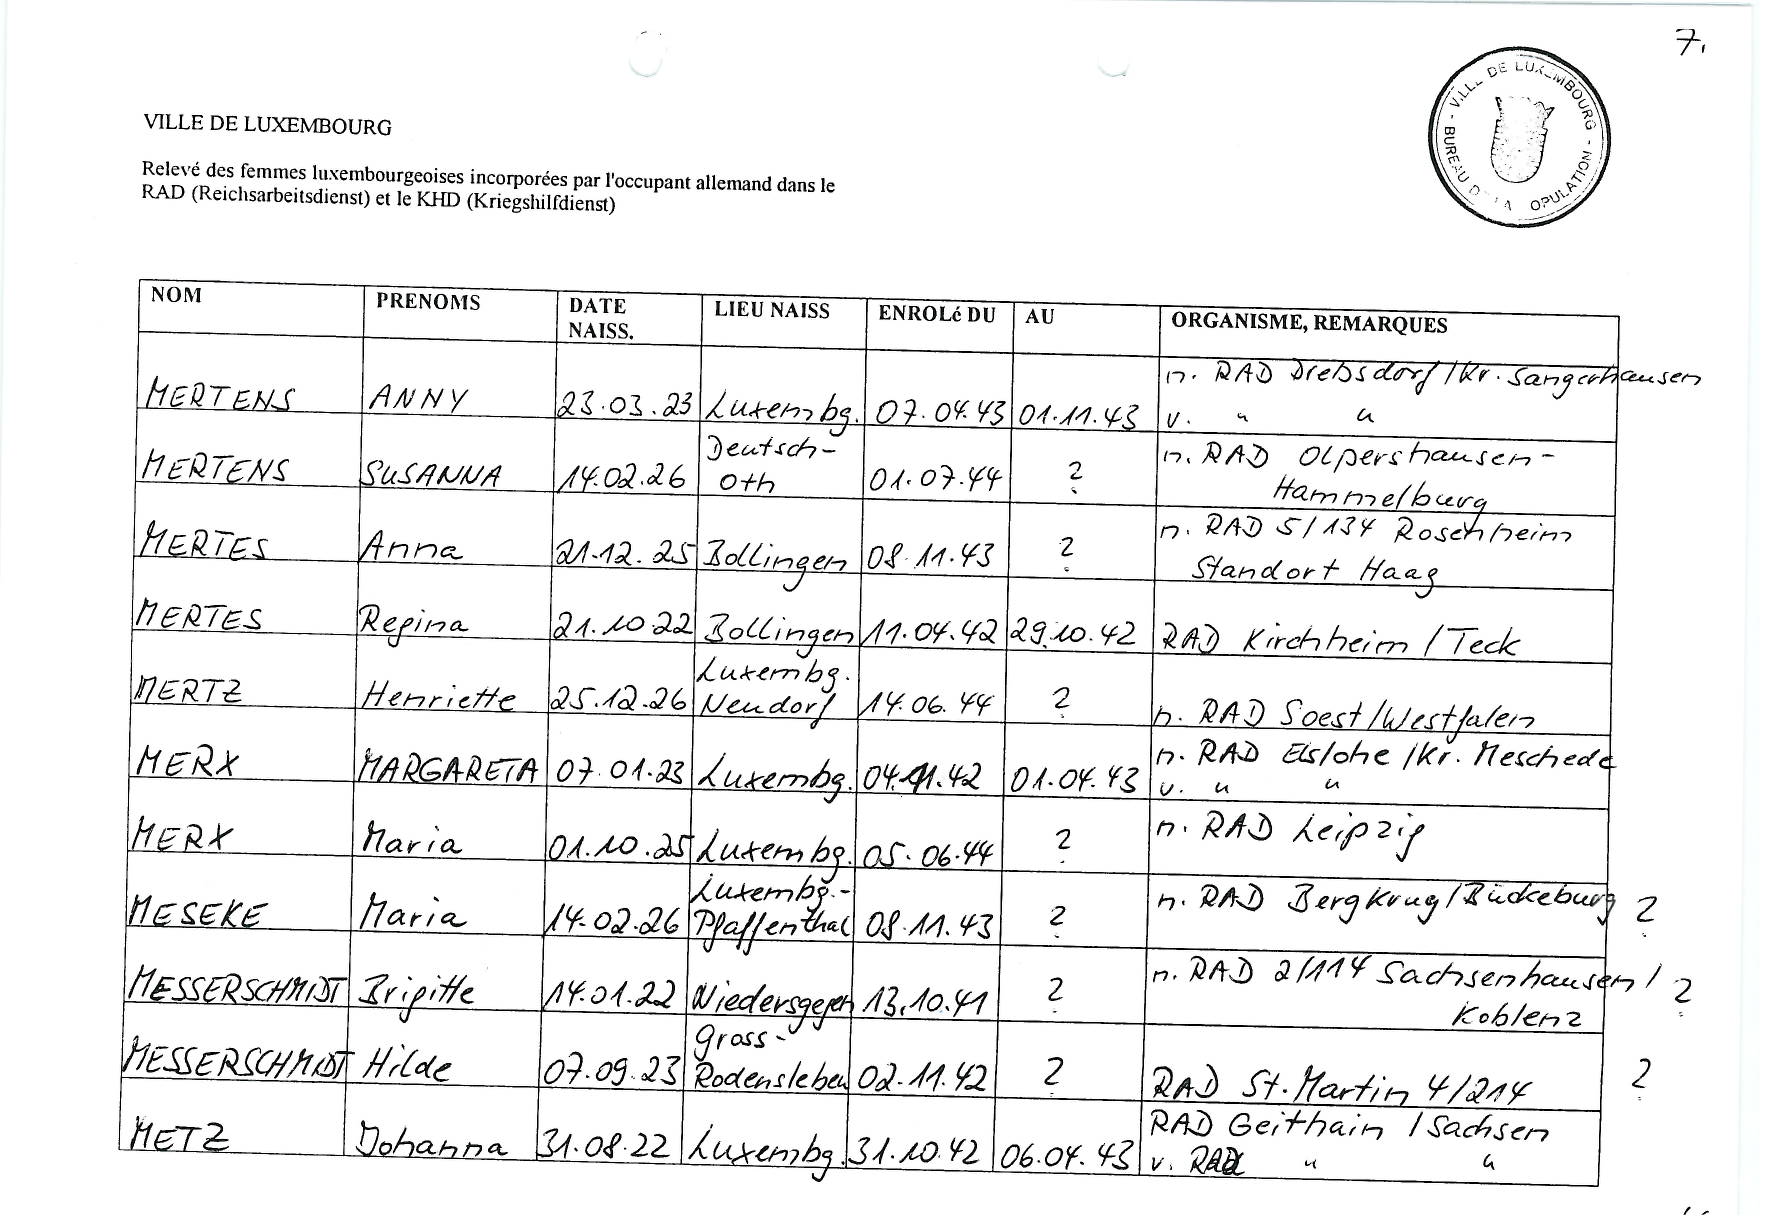 7.
VILLE DE LUXEMBOURG - BUREAU DE LA POPULATION -
VILLE DE LUXEMBOURG
Relevé des femmes luxembourgeoises incorporées par l'occupant allemand dans le
RAD (Reichsarbeitsdienst) et le KHD (Kriegshilfdienst)
NOM PRENOMS DATE NAISS. LIEU NAISS ENROLé DU AU ORGANISME, REMARQUES
MERTENS ANNY 23.03.23 Luxembg. 07.04.43 01.11.43 n. RAD Diebsdorf/Kr. Sangerhausen
v. " "
MERTENS SUSANNA 14.02.26 Deutsch-Oth 01.07.44 ? n. RAD Olpershausen-
Hammelburg
MERTES Anna 21.12.25 Bollingen 08.11.43 ? n. RAD 5/134 Rosenheim
Standort Haag
MERTES Regina 21.10.22 Bollingen 11.04.42 29.10.42 RAD Kirchheim/Teck
MERTZ Henriette 25.12.26 Luxembg. Neudorf 14.06.44 ? n. RAD Soest/Westfalen
MERX MARGARETA 07.01.23 Luxembg. 04.11.42 01.04.43 n. RAD Elslohe/Kr. Meschede
v. " "
MERX Maria 01.10.25 Luxembg. 05.06.44 ? n. RAD Leipzig
MESEKE Maria 14.02.26 Luxembg.-Pfaffenthal 08.11.43 ? n. RAD Bergkrug/Bückeburg ?
MESSERSCHMIDT Brigitte 14.01.22 Niedersgegen 13.10.41 ? n. RAD 2/114 Sachsenhausen/ ?
Koblenz
MESSERSCHMIDT Hilde 07.09.23 Gross-Rodensleben 02.11.42 ? RAD St. Martin 4/214 ?
METZ Johanna 31.08.22 Luxembg. 31.10.42 06.04.43 RAD Geithain/Sachsen
v. RAD " "